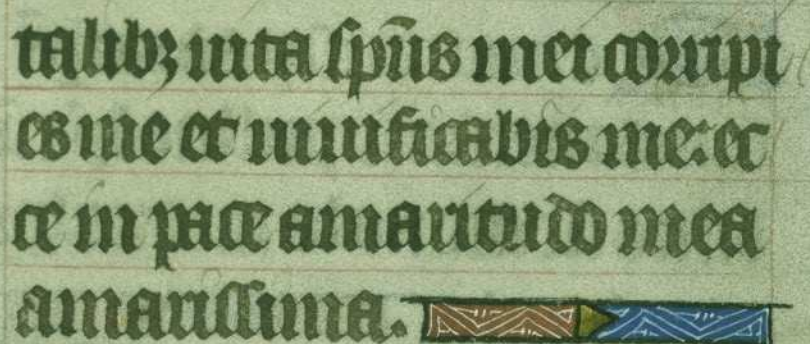 talibꝫ uita sp̄us mei corripi
es me et uiuificabis me: ec
ce in pace amaritudo mea
amarissima.